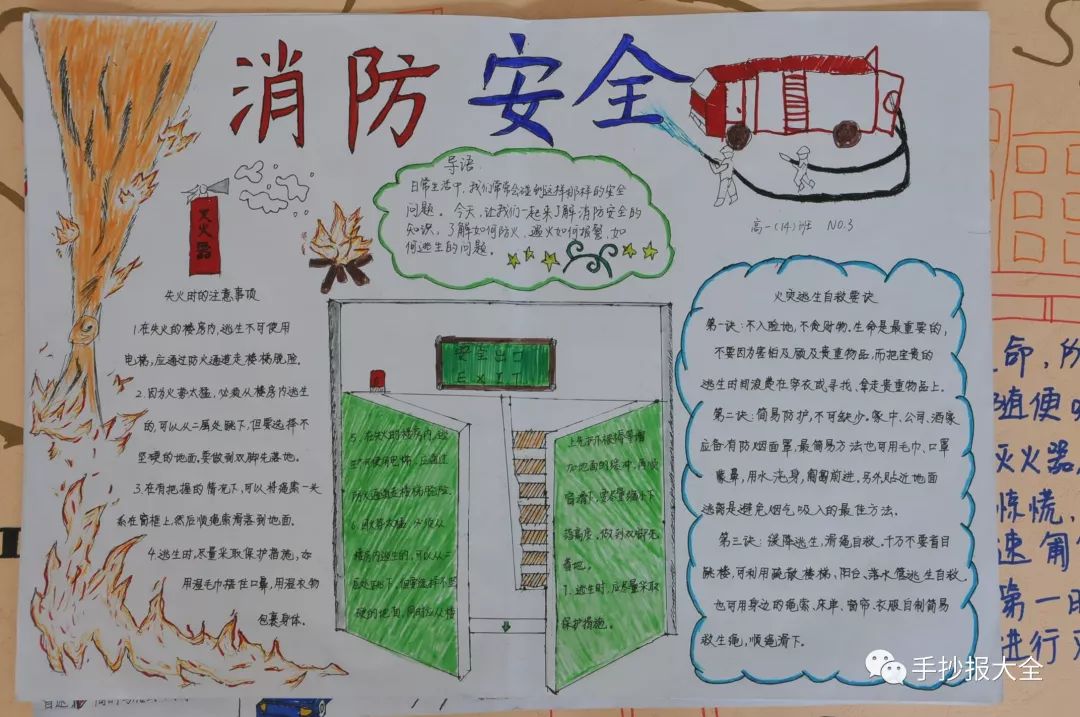 消防安全
灭火器
导语:
日常生活中,我们常常会碰到这样那样的安全
问题。今天,让我们一起来了解消防安全的
知识。了解如何防火、遇火如何报警、如
何逃生的问题。
高一(14)班 NO.3
失火时的注意事项
1.在失火的楼房内,逃生不可使用
电梯,应通过防火通道走楼梯脱险。
2.因为火势太猛,必须从楼房内逃生
的,可以从二层处跳下,但要选择不
坚硬的地面,要做到双脚先落地。
3.在有把握的情况下,可以将绳索一头
系在窗框上,然后顺绳索滑落到地面。
4.逃生时,尽量采取保护措施,如
用湿毛巾捂住口鼻,用湿衣物
包裹身体。
安全出口
EXIT
5、在失火的楼房内,逃
生不可使用电梯,应通过
防火通道走楼梯脱险。
6.因火势太猛,必须从
楼房内逃生的,可以从二
层处跳下,但要选择不坚
硬的地面,同时应从楼
上先扔下棉被等增
加地面的缓冲,再顺
窗滑下,要尽量缩小下
落高度,做到双脚先
着地。
7、逃生时,应尽量采取
保护措施。
火灾逃生自救要诀
第一诀:不入险地,不贪财物。生命是最重要的,
不要因为害怕及顾及贵重物品,而把宝贵的
逃生时间浪费在穿衣或寻找、拿走贵重物品上。
第二诀:简易防护,不可缺少。家中、公司、酒家
应备有防烟面罩,最简易方法也可用毛巾、口罩
蒙鼻,用水浇身,匍匐前进。另外贴近地面
逃离是避免烟气吸入的最佳方法。
第三诀:缓降逃生,滑绳自救。千万不要盲目
跳楼,可利用疏散楼梯、阳台、落水管逃生自救。
也可用身边的绳索、床单、窗帘、衣服自制简易
救生绳,顺绳滑下。
命,所
随便
灭火器,
惊慌,
速匍匐
第一时
进行
手抄报大全